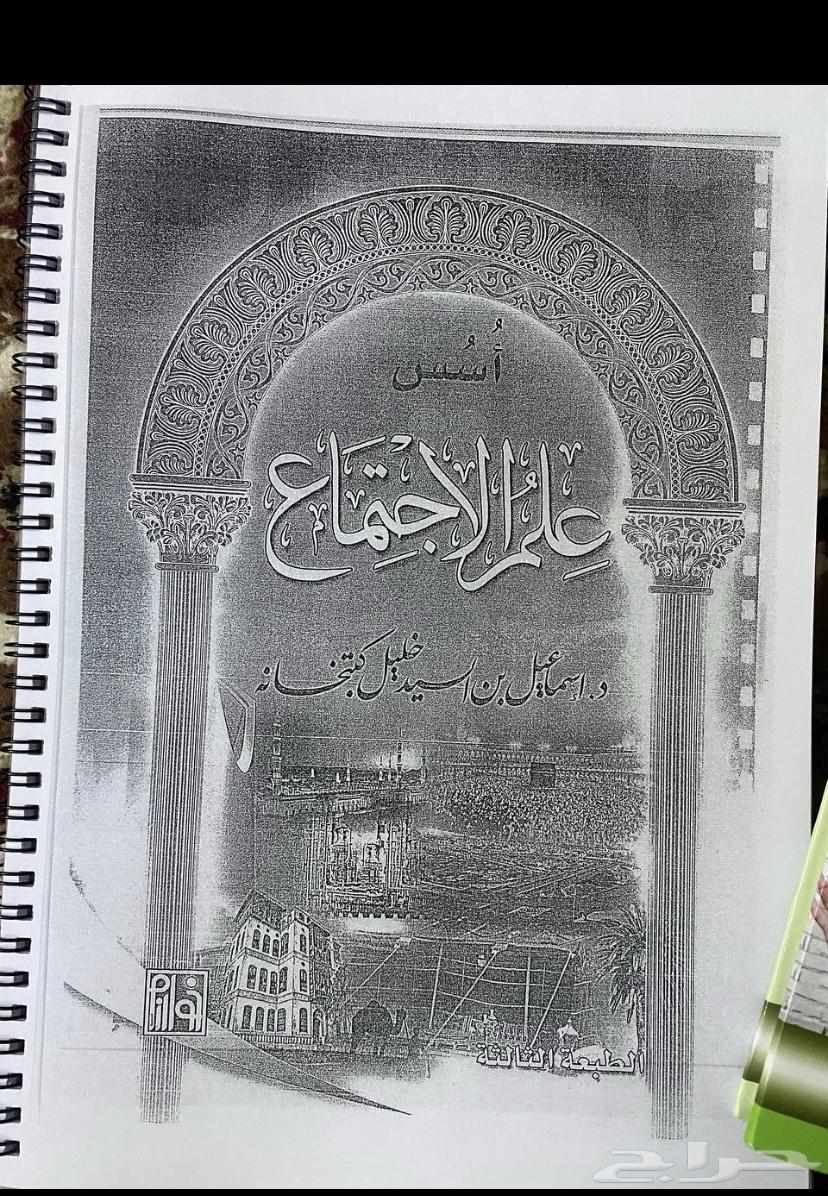 أُسُس
عِلمُ الاجتِمَاع
د. إسماعيل بن السيد خليل كتبخانه
خوارزم
الطبعة الثالثة
حراج